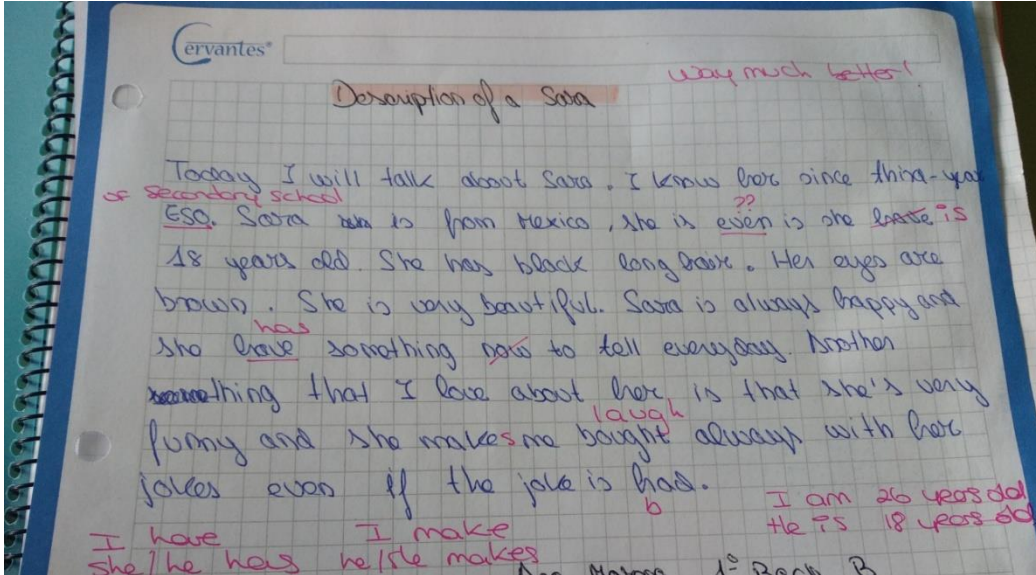 Cervantes®
way much better!
Description of a Sara
Today I will talk about Sara. I know her since third-year
of secondary school
ESO. Sara is from Mexico, she is even is she have is
??
18 years old. She has black long hair. Her eyes are
brown. She is very beautiful. Sara is always happy and
has
she have something now to tell everyday. Another
thing that I love about her is that she's very
laugh
funny and she makes me bought always with her
jokes even if the joke is had.
b
I am 26 years old
He is 18 years old
I have
She/he has
I make
he/she makes
1º Bach B